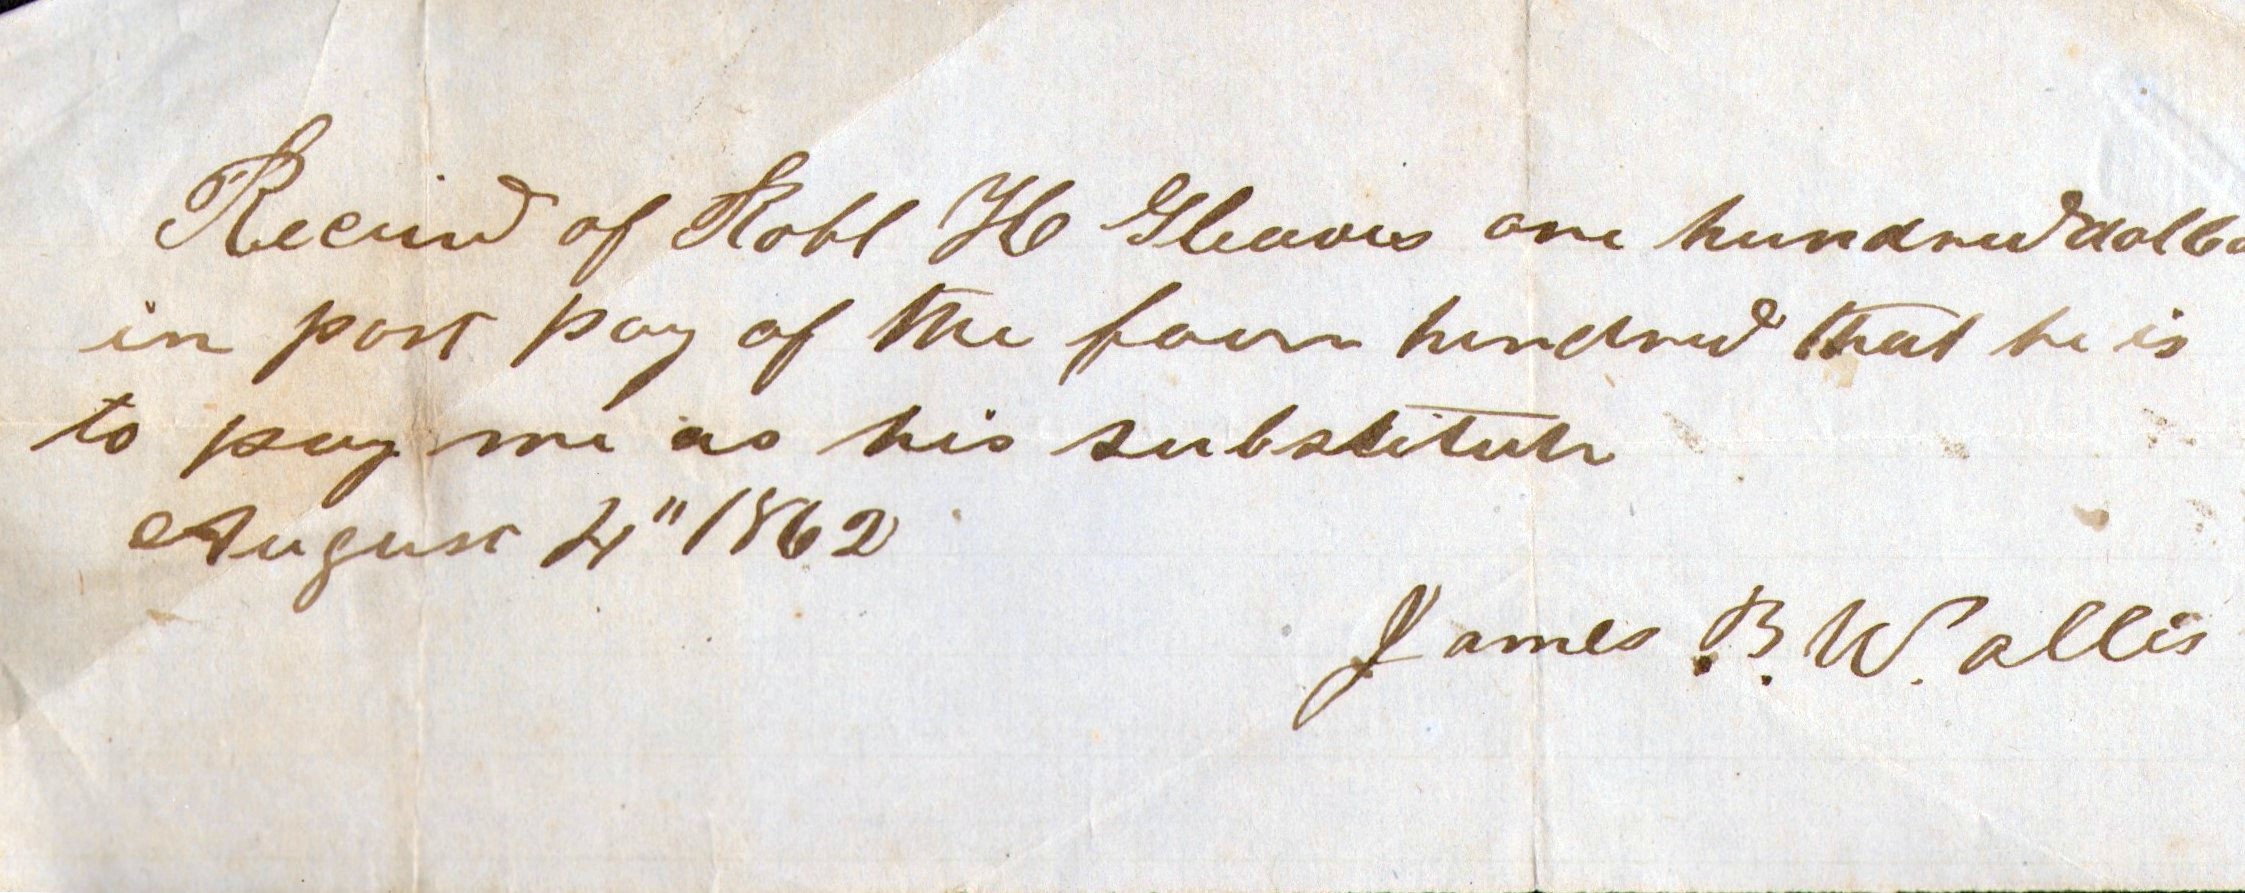 Receivd of Robt H Gleaves one hundred dolla
in part pay of the four hundred that he is
to pay me as his substitute
August 4" 1862
James B. Wallis